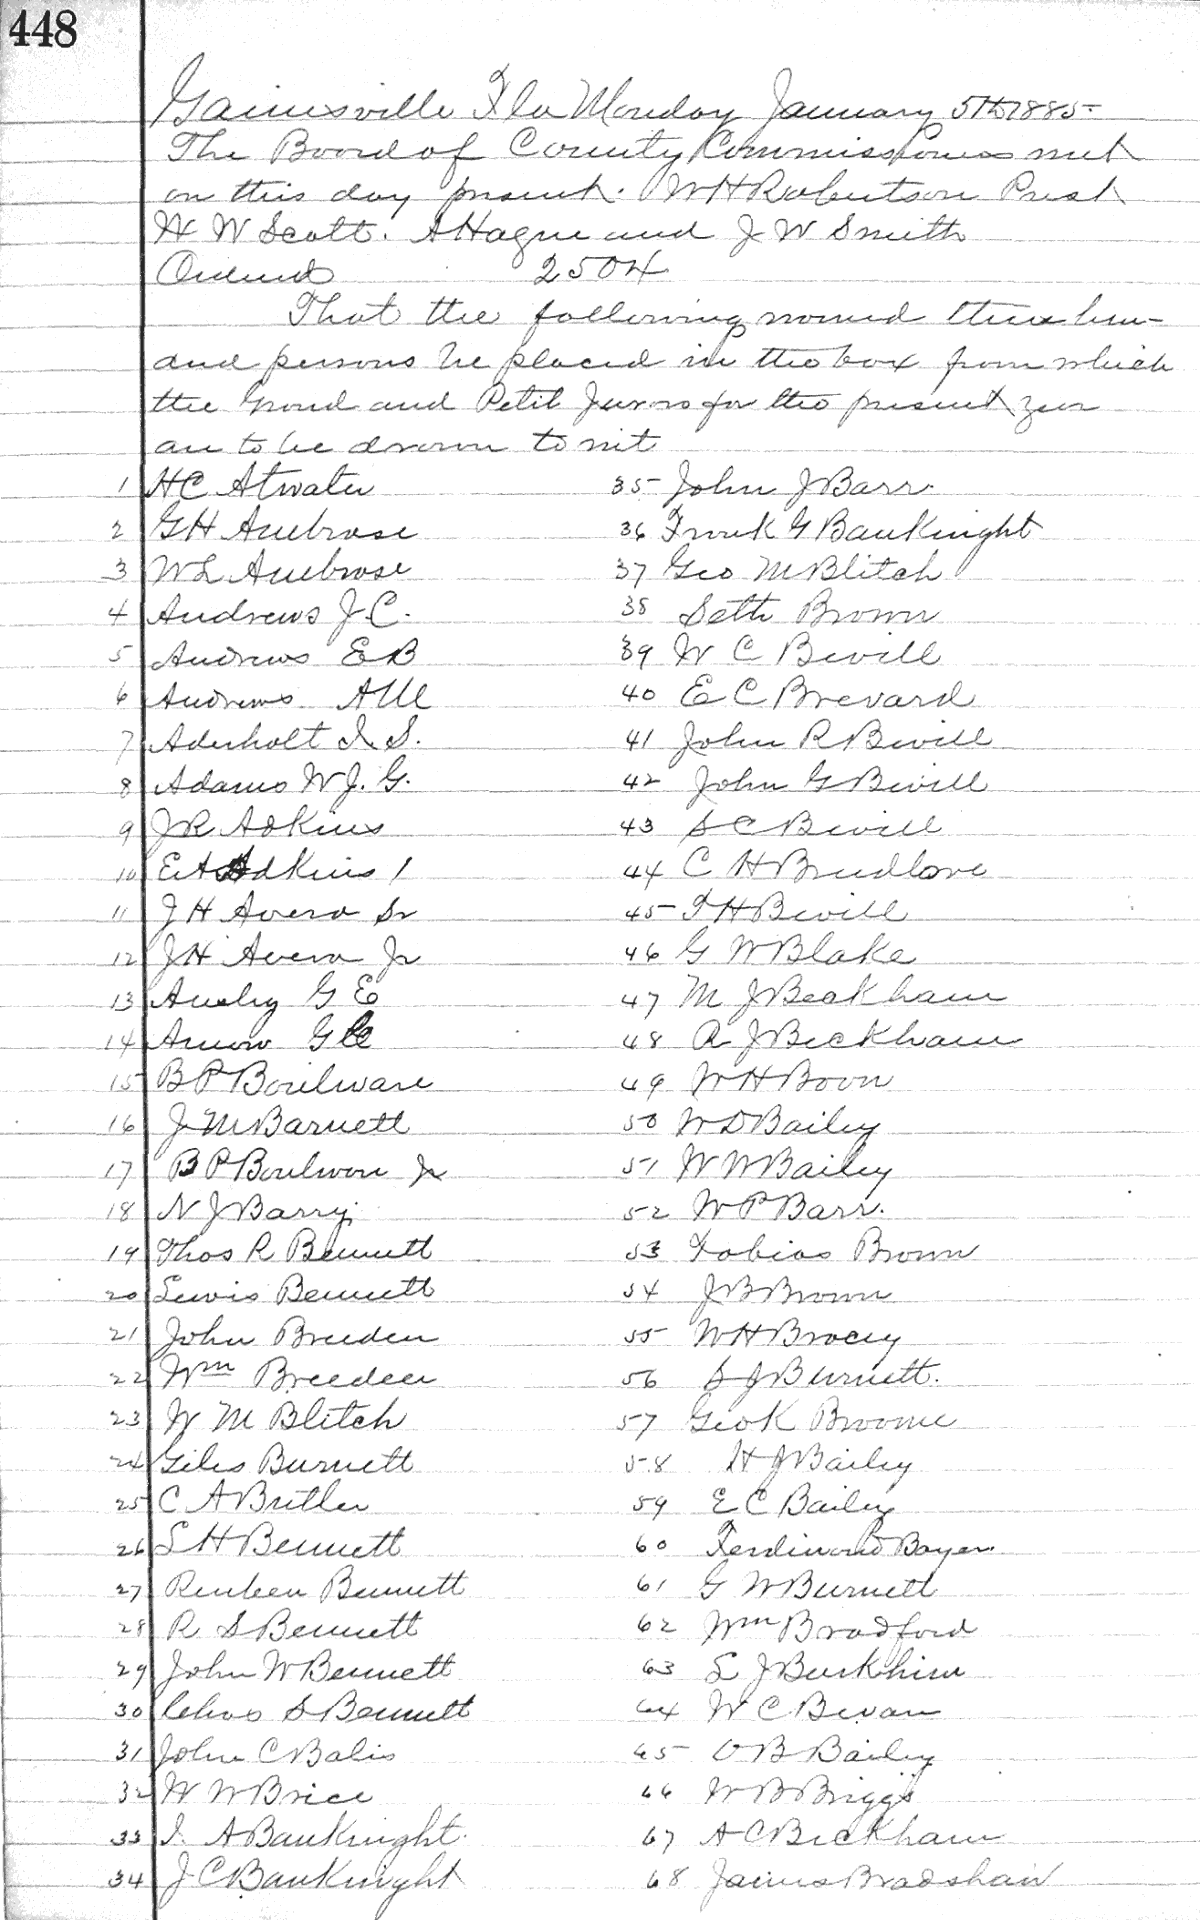 448
Gainesville Fla Monday January 5th 1885-
The Board of County Commissioners met
on this day present. W H Robertson Prest
W W Scott. A Hague and J W Smith
Ordered 2504
That the following named three hun-
dred persons be placed in the box from which
the Grand and Petit Jurors for the present year
are to be drawn to wit
1 H C Atwater
2 G H Ambrose
3 W L Ambrose
4 Andrews J. C.
5 Andrews E B
6 Andrews A M
7 Aderholt I. S.
8 Adams W J. G.
9 J R Adkins
10 E A Adkins
11 J H Avera Sr
12 J H Avera Jr
13 Ausley G E
14 Arnow G
15 B P Boulware
16 J M Barnett
17 B P Boulware Jr
18 N J Barry
19 Thos R Bennett
20 Lewis Bennett
21 John Breeden
22 Wm Breeden
23 W M Blitch
24 Giles Burnett
25 C A Butler
26 L H Bennett
27 Reuben Bennett
28 R S Bennett
29 John W Bennett
30 Chas S Bennett
31 John C Balis
32 W W Brice
33 I. A Bauknight
34 J C Bauknight
35 John J Barr.
36 Frank G Bauknight
37 Geo M Blitch
38 Seth Brown
39 W C Bevill
40 E C Brevard
41 John R Bevill
42 John G Bevill
43 S C Bevill
44 C H Breedlove
45 F H Bevill
46 G W Blake
47 M J Beckham
48 R J Beckham
49 W H Boon
50 W D Bailey
51 W W Bailey
52 W P Barr.
53 Tobias Brown
54 J B Brown
55 W H Bracey
56 S J Burnett.
57 Geo K Broome
58 H J Bailey
59 E C Bailey
60 Ferdinand Bayer.
61 G W Burnett
62 Wm Bradford
63 L J Burkhim
64 W C Bevan
65 O B Bailey
66 W B Briggs
67 A C Beckham
68 James Bradshaw